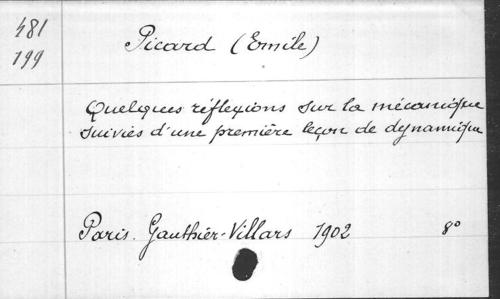 481
199
Picard (Emile)
Quelques réflexions sur la mécanique
suivies d'une première leçon de dynamique
Paris. Gauthier-Villars 1902 8°